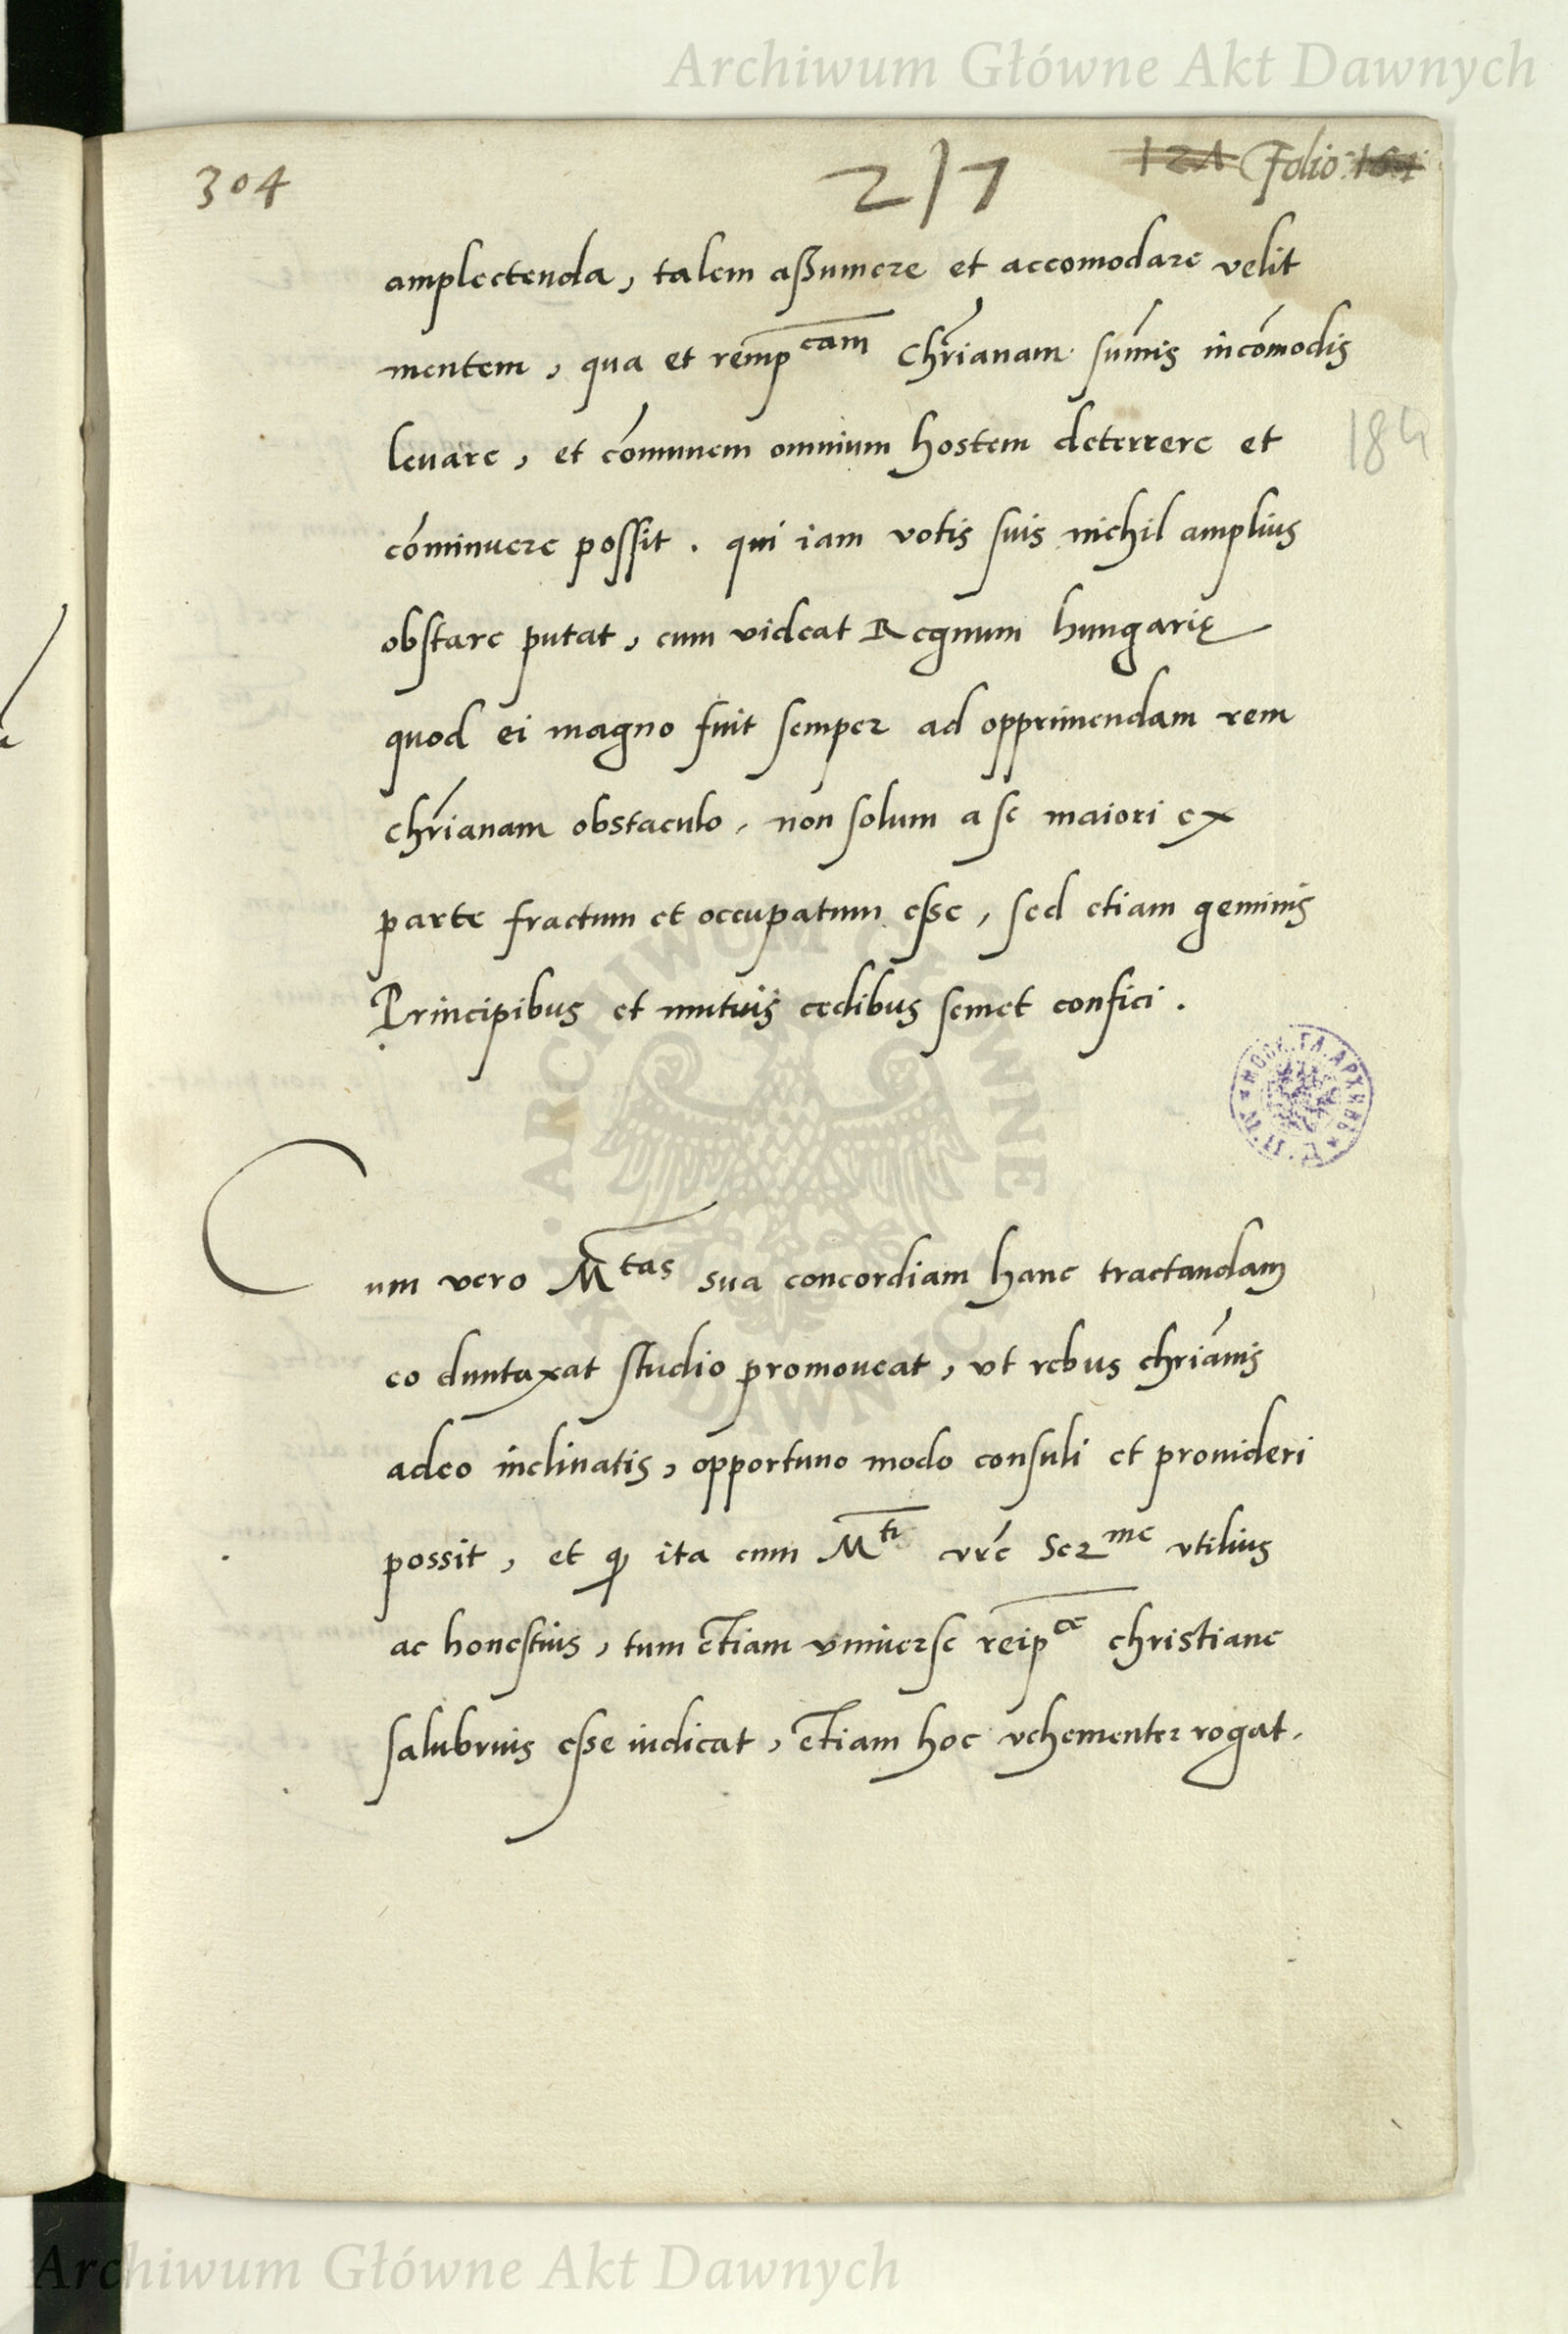 Archiwum Główne Akt Dawnych
304 217 121 Folio 164
amplectenda, talem aßumere et accomodare velit
mentem, qua et remp^cam Chr̃ianam sum̃is incõmodis
184
levare, et cõmunem omnium hostem deterrere et
cõminuere possit. qui iam votis suis nichil amplius
obstare putat, cum videat Regnum hungarię
quod ei magno fuit semper ad opprimendam rem
chr̃ianam obstaculo, non solum a se maiori ex
parte fractum et occupatum eße, sed etiam geminis
Principibus et mutuis cedibus semet confici.
Cum vero M^tas sua concordiam hanc tractandam
eo duntaxat studio promoveat, vt rebus chriãnis
adeo inclinatis, opportuno modo consuli et provideri
possit, et ꝙ ita cum M^ti vrẽ Ser^me vtilius
ac honestius, tum etiam vniverse reip^ce christiane
salubrius eße iudicat, etiam hoc vehementer rogat.
Archiwum Główne Akt Dawnych